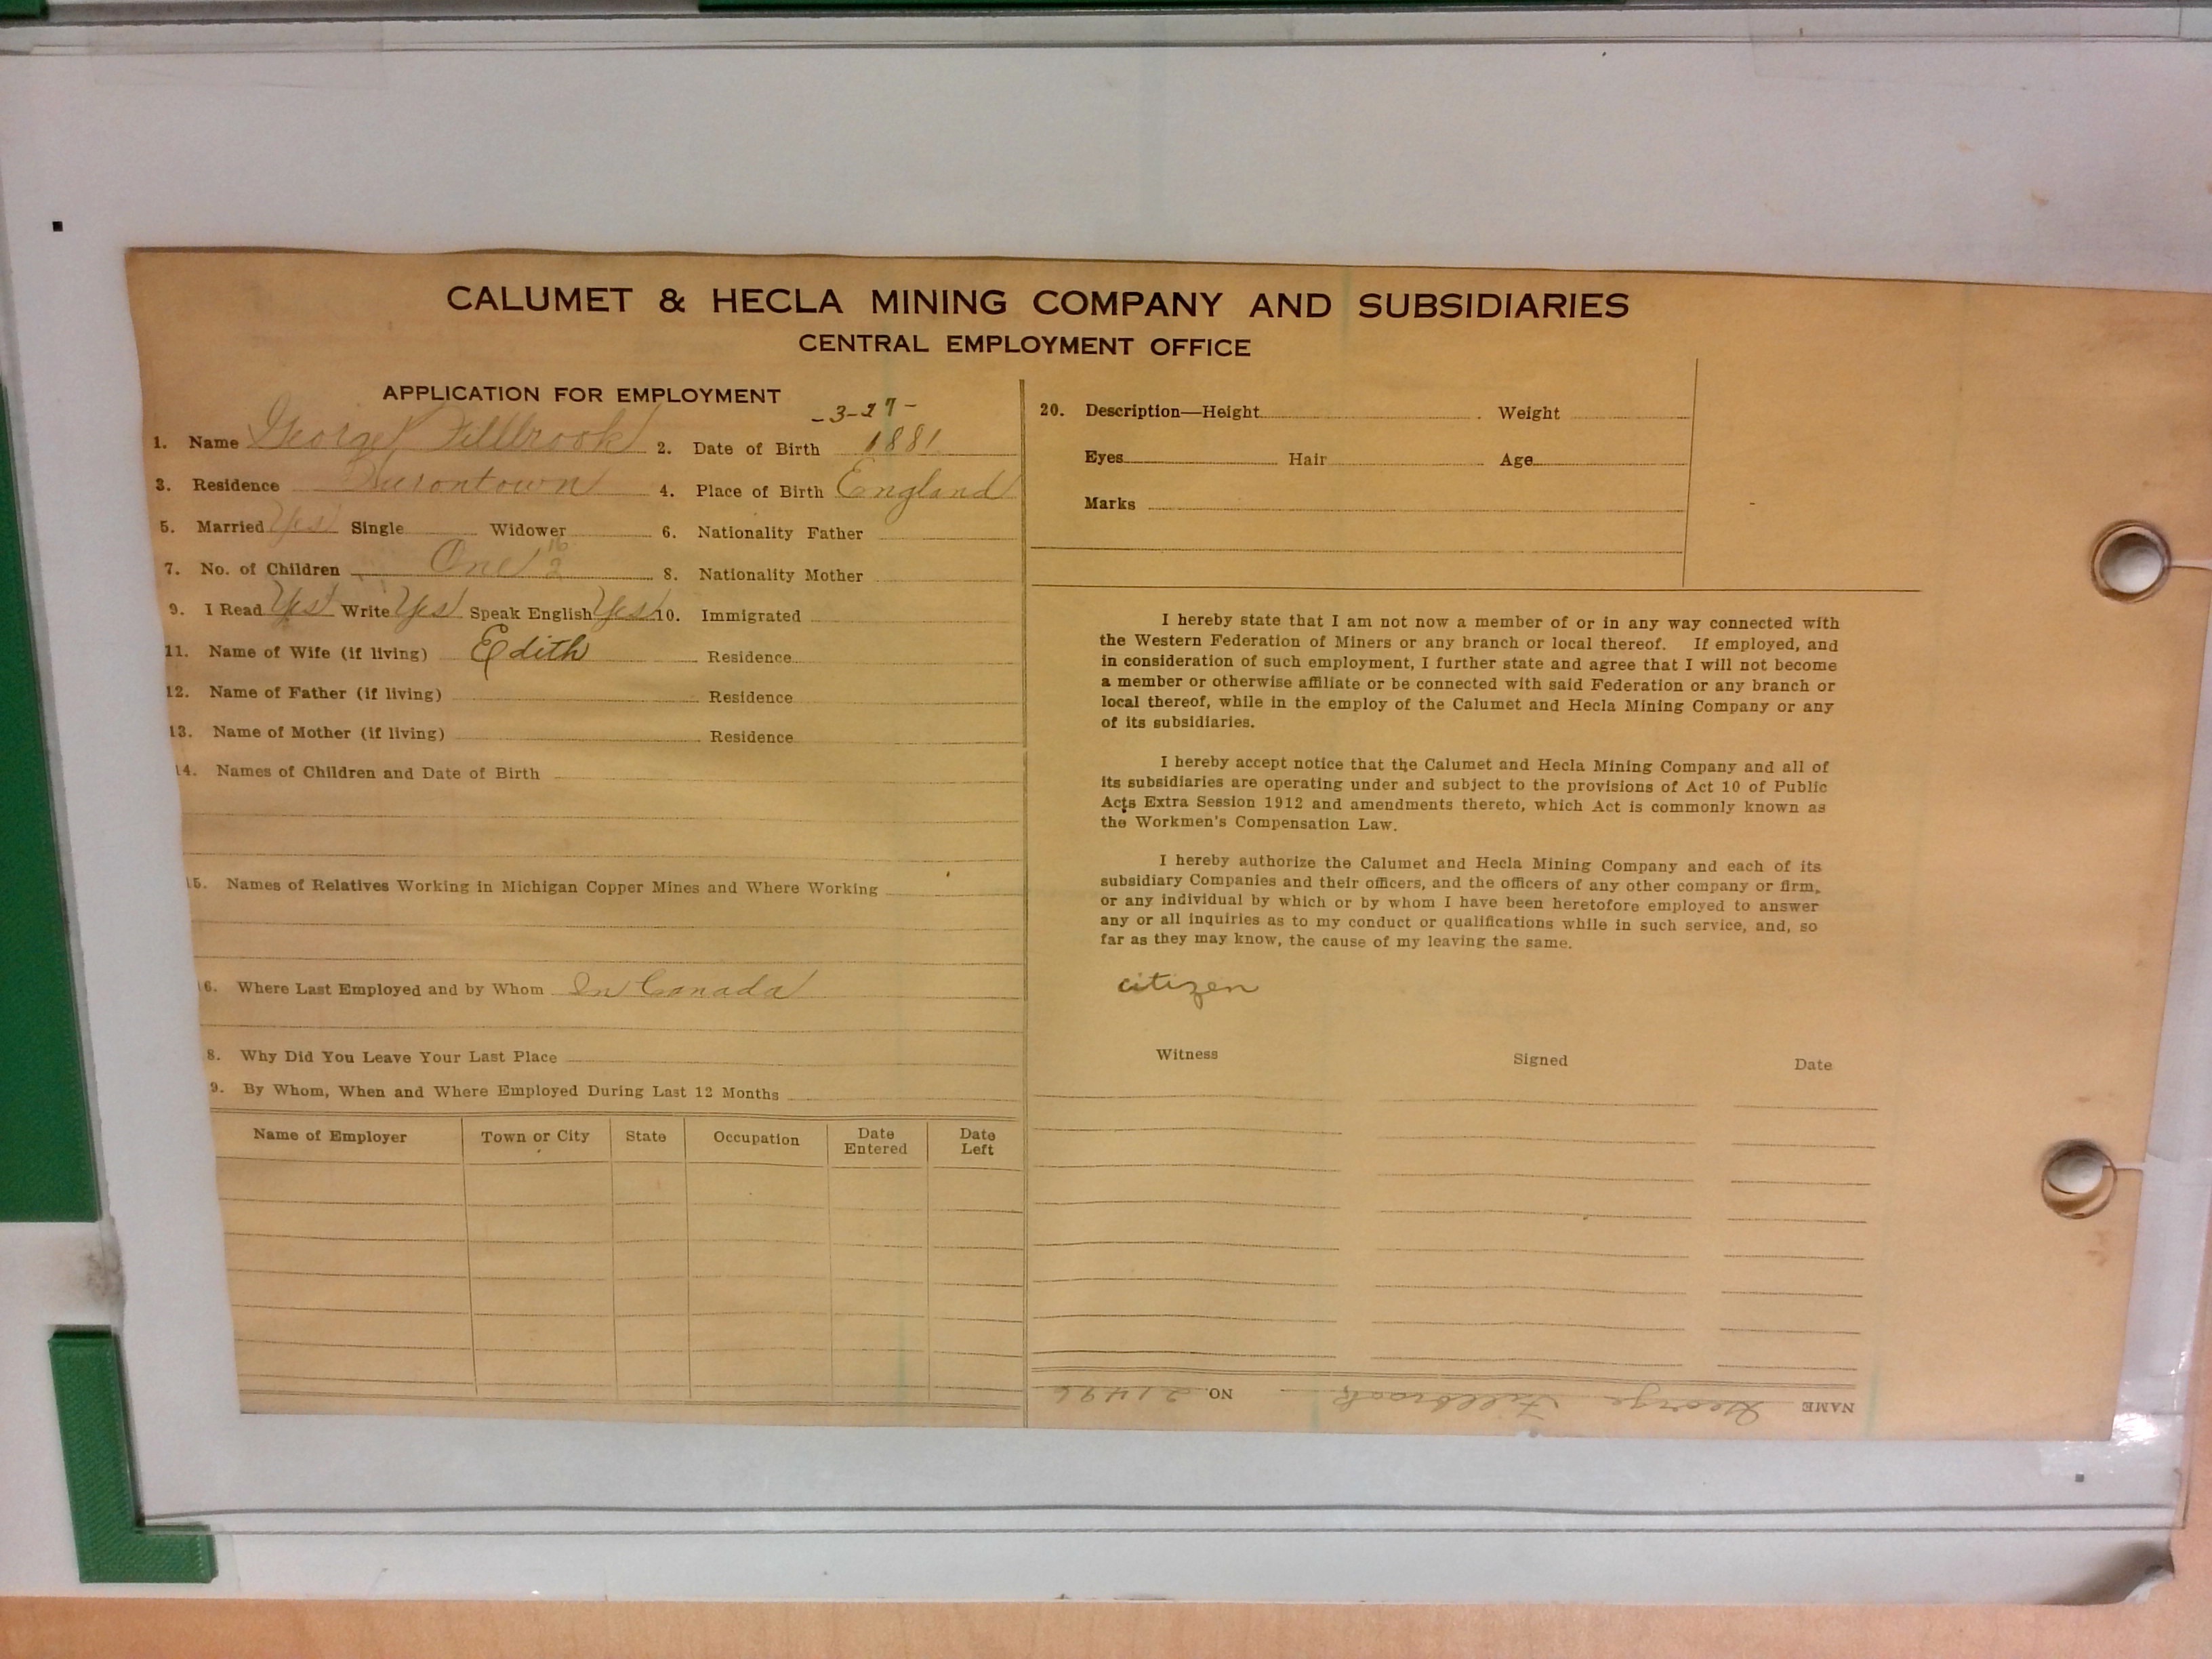 CALUMET & HECLA MINING COMPANY AND SUBSIDIARIES
CENTRAL EMPLOYMENT OFFICE
APPLICATION FOR EMPLOYMENT
1. Name George Fillbrook 2. Date of Birth -3-27- 1881
3. Residence Hurontown 4. Place of Birth England
5. Married Yes Single Widower 6. Nationality Father
7. No. of Children One 8. Nationality Mother
9. I Read Yes Write Yes Speak English Yes 10. Immigrated
11. Name of Wife (if living) Edith Residence
12. Name of Father (if living) Residence
13. Name of Mother (if living) Residence
14. Names of Children and Date of Birth
15. Names of Relatives Working in Michigan Copper Mines and Where Working
16. Where Last Employed and by Whom In Canada
8. Why Did You Leave Your Last Place
9. By Whom, When and Where Employed During Last 12 Months
Name of Employer Town or City State Occupation Date Entered Date Left
20. Description—Height Weight
Eyes Hair Age
Marks
I hereby state that I am not now a member of or in any way connected with
the Western Federation of Miners or any branch or local thereof. If employed, and
in consideration of such employment, I further state and agree that I will not become
a member or otherwise affiliate or be connected with said Federation or any branch or
local thereof, while in the employ of the Calumet and Hecla Mining Company or any
of its subsidiaries.
I hereby accept notice that the Calumet and Hecla Mining Company and all of
its subsidiaries are operating under and subject to the provisions of Act 10 of Public
Acts Extra Session 1912 and amendments thereto, which Act is commonly known as
the Workmen's Compensation Law.
I hereby authorize the Calumet and Hecla Mining Company and each of its
subsidiary Companies and their officers, and the officers of any other company or firm,
or any individual by which or by whom I have been heretofore employed to answer
any or all inquiries as to my conduct or qualifications while in such service, and, so
far as they may know, the cause of my leaving the same.
citizen
Witness Signed Date
NAME George Fillbrook NO. 21496